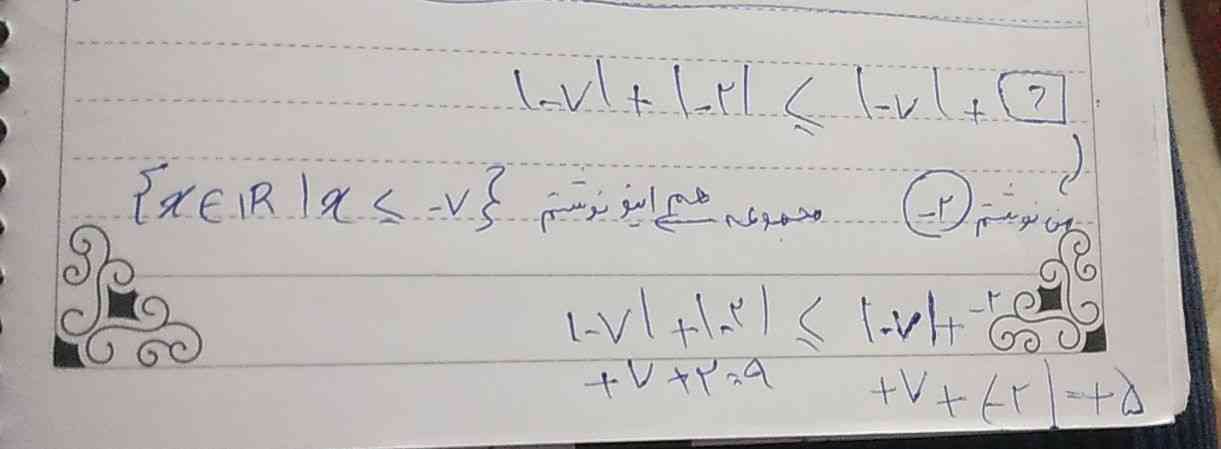 |-۷| + |-۲| ≤ |-۷| + [?]
من نوشتم (-۲) مجموعه هم اینو نوشتم {x∈ℝ | x ≤ -۷}
|-۷| + |-۲| ≤ |-۷| + -۲
+۷+۲=۹ +۷+(-۲)=+۵